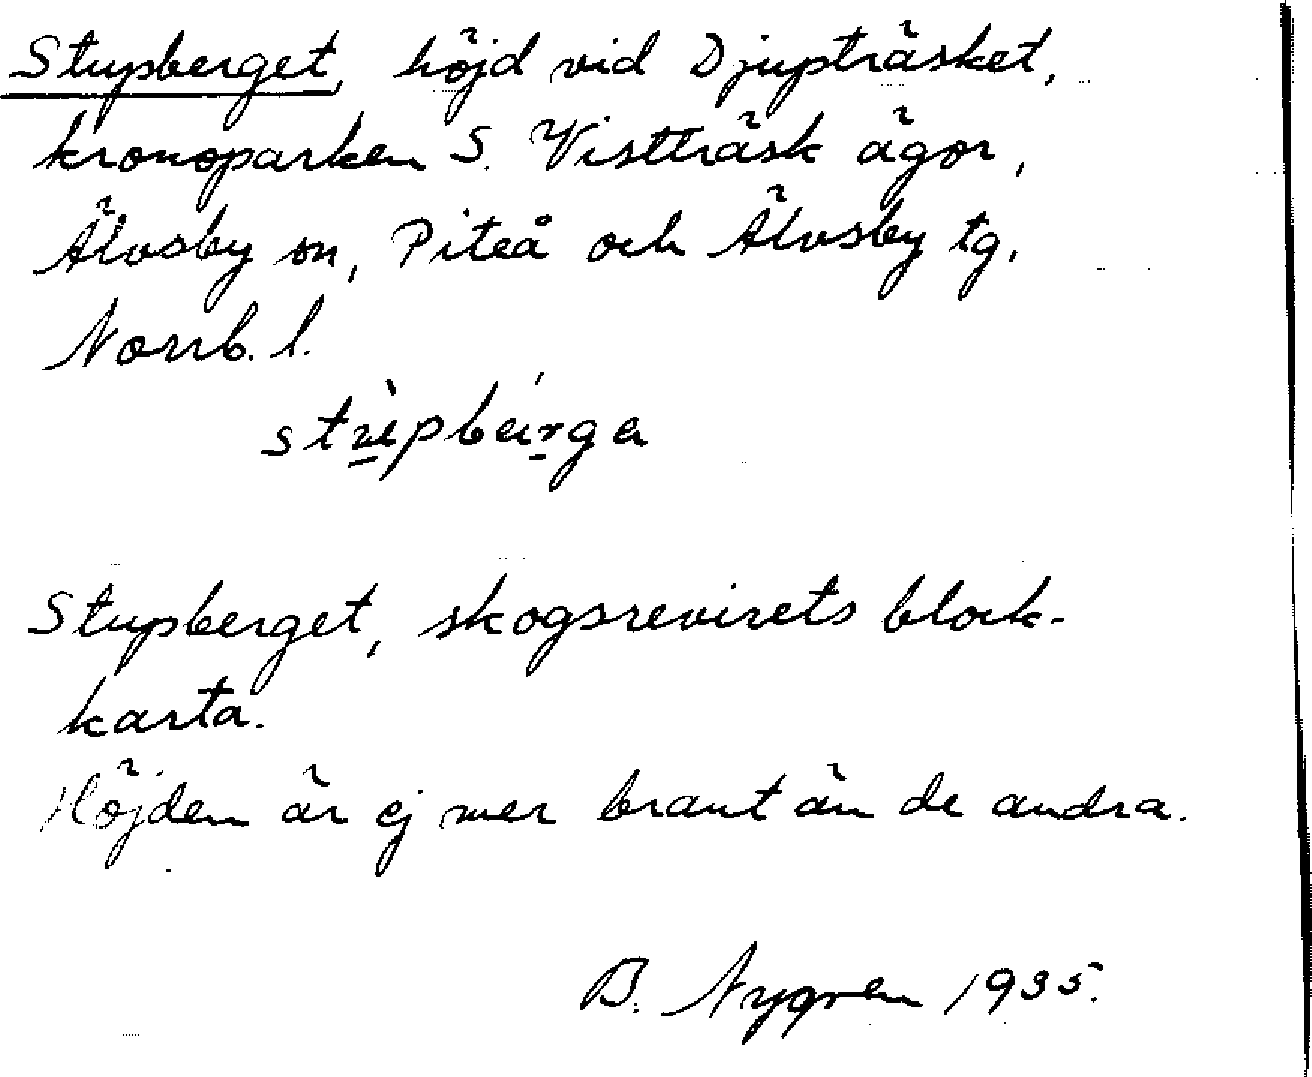 Stupberget, höjd vid Djupträsket,
kronoparken S. Vistträsk ägor,
Älvsby sn, Piteå och Älvsby tg,
Norrb. l.
Stupberget, skogsrevirets block-
karta.
Höjden är ej mer brant än de andra.
B. Nygren 1935.